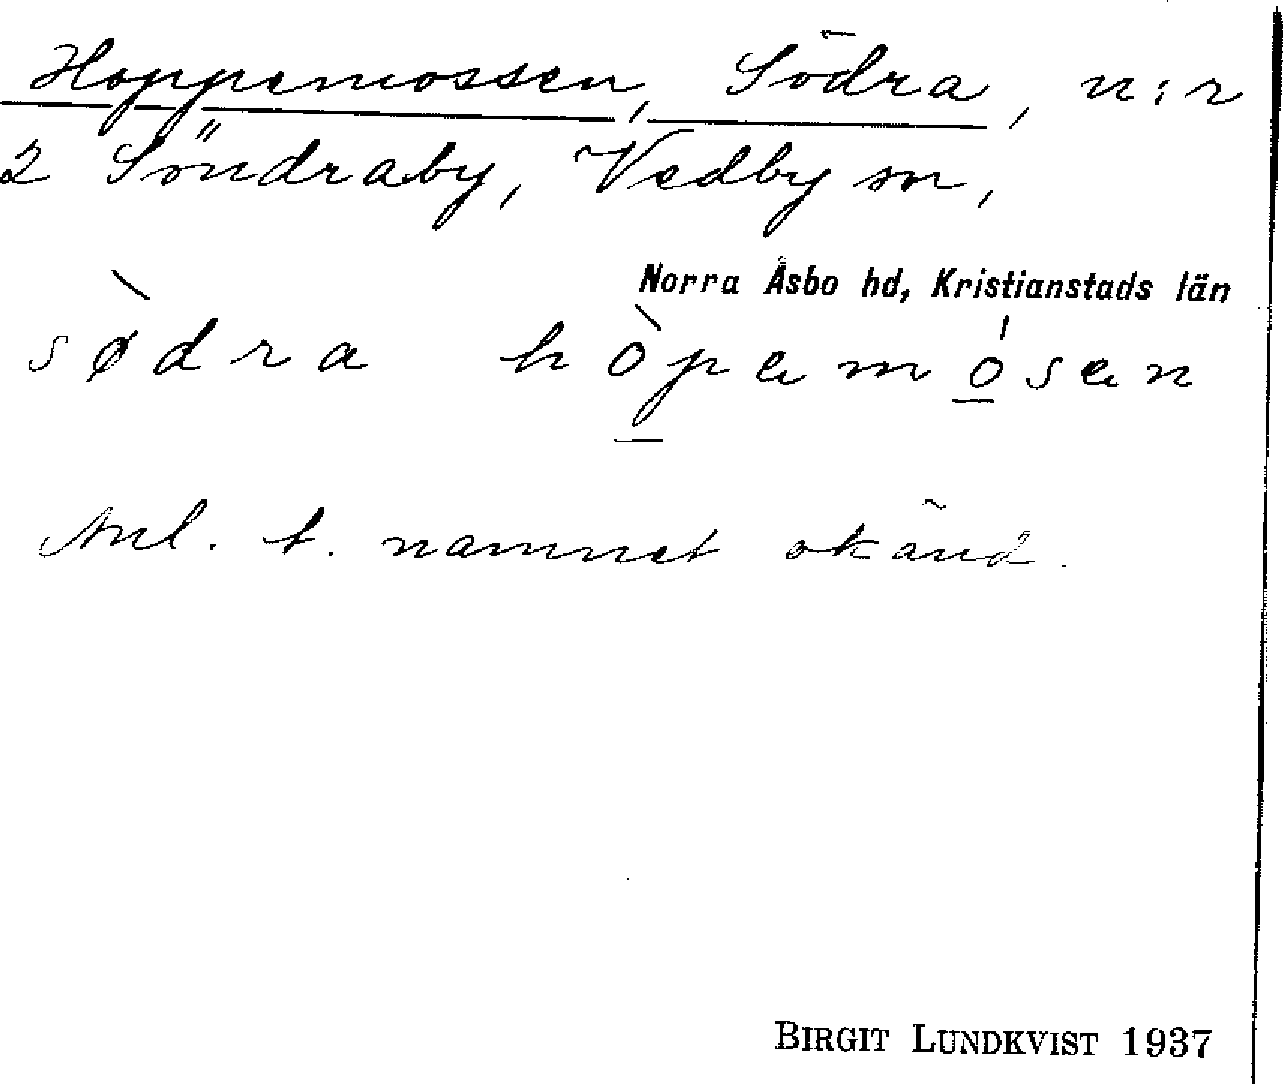 Hoppemossen, Södra, n:r
2 Söndraby, Vedby sn,
Norra Åsbo hd, Kristianstads län
sø̀dra hò̲pamó̲san
Anl. t. namnet okänd.
BIRGIT LUNDKVIST 1937